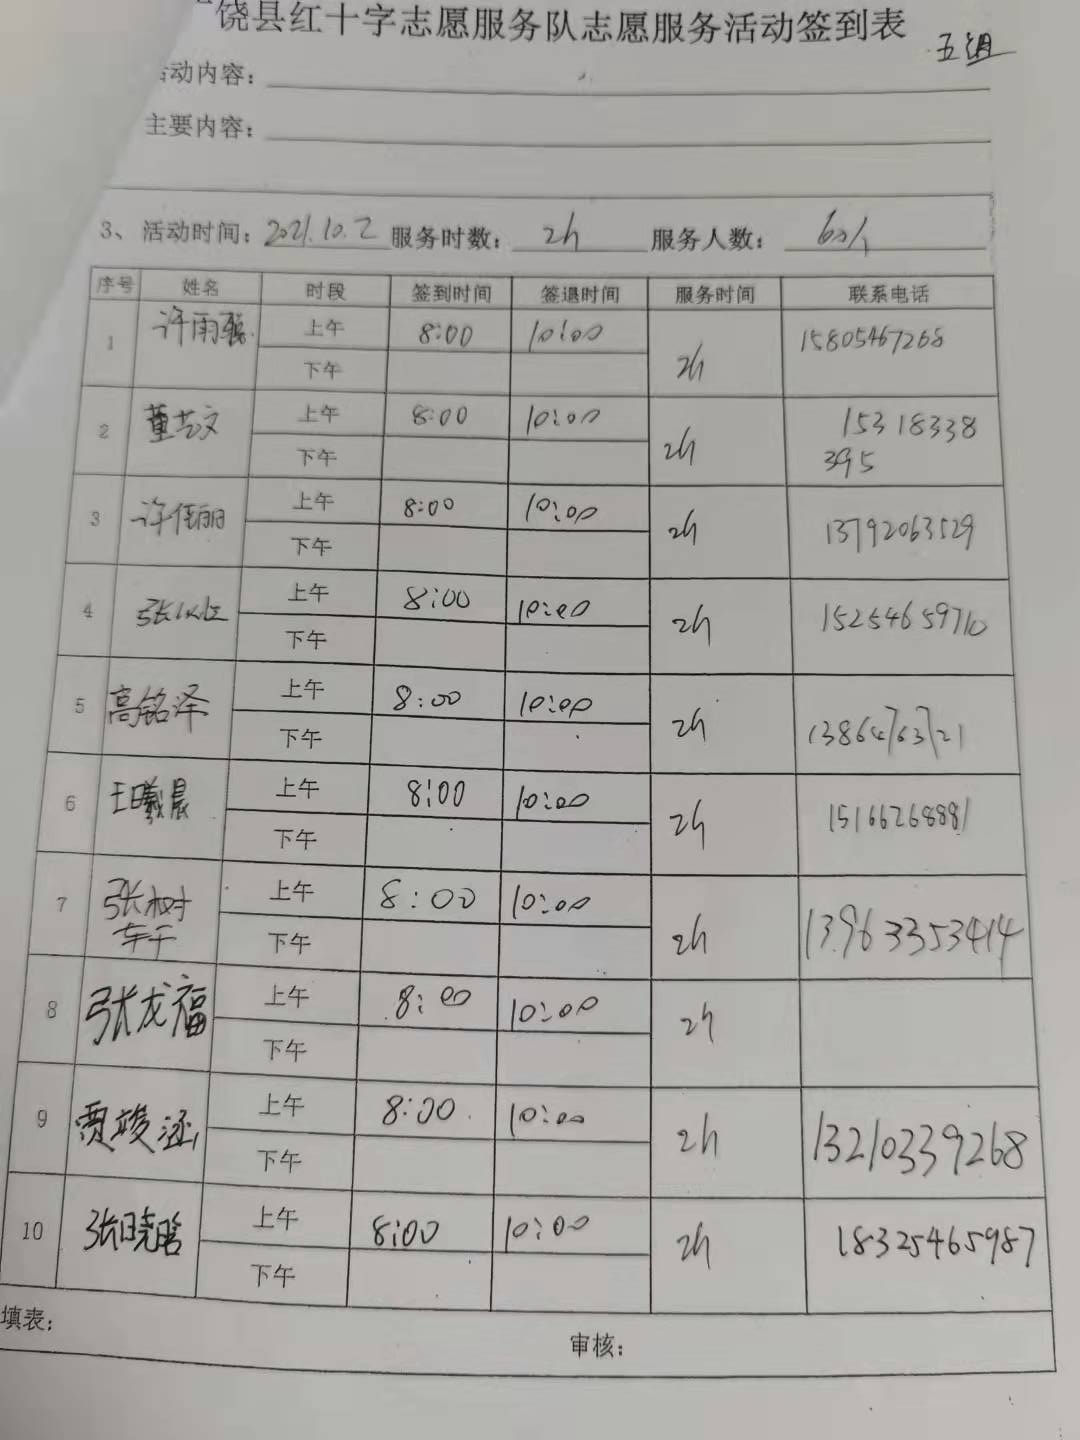 饶县红十字志愿服务队志愿服务活动签到表
五组
活动内容：
主要内容：
3、活动时间：2021.10.2 服务时数：2h 服务人数：60人
序号 姓名 时段 签到时间 签退时间 服务时间 联系电话
1 许雨 上午 8:00 10:00 2h 15805467268
下午
2 董艺文 上午 8:00 10:00 2h 15318338
395
下午
3 许佳丽 上午 8:00 10:00 2h 13792063529
下午
4 张 上午 8:00 10:00 2h 15254659710
下午
5 高铭泽 上午 8:00 10:00 2h 13864763721
下午
6 王曦晨 上午 8:00 10:00 2h 15166268881
下午
7 张树 上午 8:00 10:00 2h 13963353414
下午
8 张龙福 上午 8:00 10:00 2h
下午
9 贾竣涵 上午 8:00 10:00 2h 13210339268
下午
10 张晓晗 上午 8:00 10:00 2h 18325465987
下午
填表：
审核：